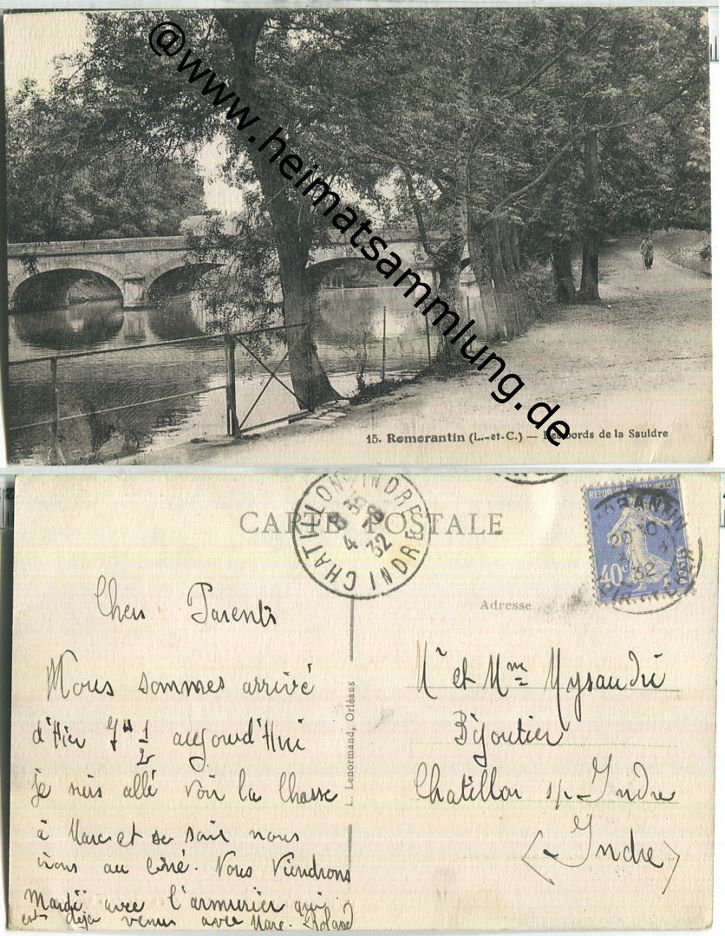 @www.heimatsammlung.de
15. Romorantin (L.-et-C.) — Les bords de la Sauldre
CARTE POSTALE
CHATILLON S INDRE
INDRE
8 35
4 -8
32
REPUBLIQUE FRANÇAISE
ROMORANTIN
20 30
32
40c
POSTES
Adresse
L. Lenormand, Orléans
Chers Parents
Nous sommes arrivé
d'Hier 7H 1/2 aujourd'Hui
je suis allé voir la Chasse
à Marc et se soir nous
irons au ciné. Nous Viendrons
Mardi avec l'armurier qui
est déja venus avec Marc.
Mr et Mme
Bijoutier
Chatillon s/- Indre
(Indre)